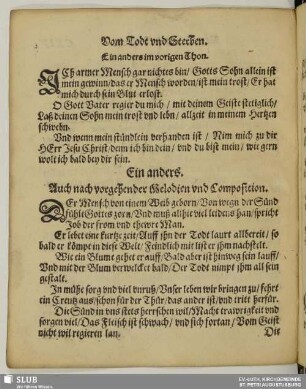 Vom Todt vnd Sterben.
Ein anders im vorigen Thon.
ICh armer Mensch gar nichtes bin/ Gotts Sohn allein ist
mein gewinn/das er Mensch worden/ist mein trost/ Er hat
mich durch sein Blut erlost.
O Gott Vater regier du mich / mit deinem Geiste stetiglich/
Laß deinen Sohn mein trost vnd lebn/ allzeit in meinem Hertzen
schwebn.
Vnd wenn mein stündlein verhanden ist / Nim mich zu dir
HErr Jesu Christ/denn ich bin dein/ vnd du bist mein/ wie gern
wolt ich bald bey dir sein.
Ein anders.
Auch nach vorgehender Melodien vnd Composition.
DEr Mensch von einem Weib geborn/ Von wegn der Sünd
fühlt Gottes zorn/ Vnd muß alhie viel leiden has/spricht
Job der from vnd thewre Man.
Er lebet eine kurtze zeit/ Auff ihn der Todt laurt allbereit / so
bald er kömpt in diese Welt/ Feindlich mit list er ihm nachstelt.
Wie ein Blume gehet er auff/ Bald aber ist hinweg sein lauff/
Vnd mit der Blum verwelcket bald/ Der Todt nimpt ihm all sein
gestalt.
In mühe sorg vnd viel vnruh/ Vnser leben wir bringen zu/ fehrt
ein Creutz aus/ schon für der Thür/ das ander ist/ vnd tritt herfür.
Die Sünd in vns stets herrschen wil/ Macht trawrigkeit vnd
sorgen viel/ Das Fleisch ist schwach/ vnd sich fortan/ Vom Geist
nicht wil regieren lan.
Die
SLUB
Wir führen Wissen.
EV.-LUTH. KIRCHGEMEINDE
ST. PETRI AUGUSTUSBURG